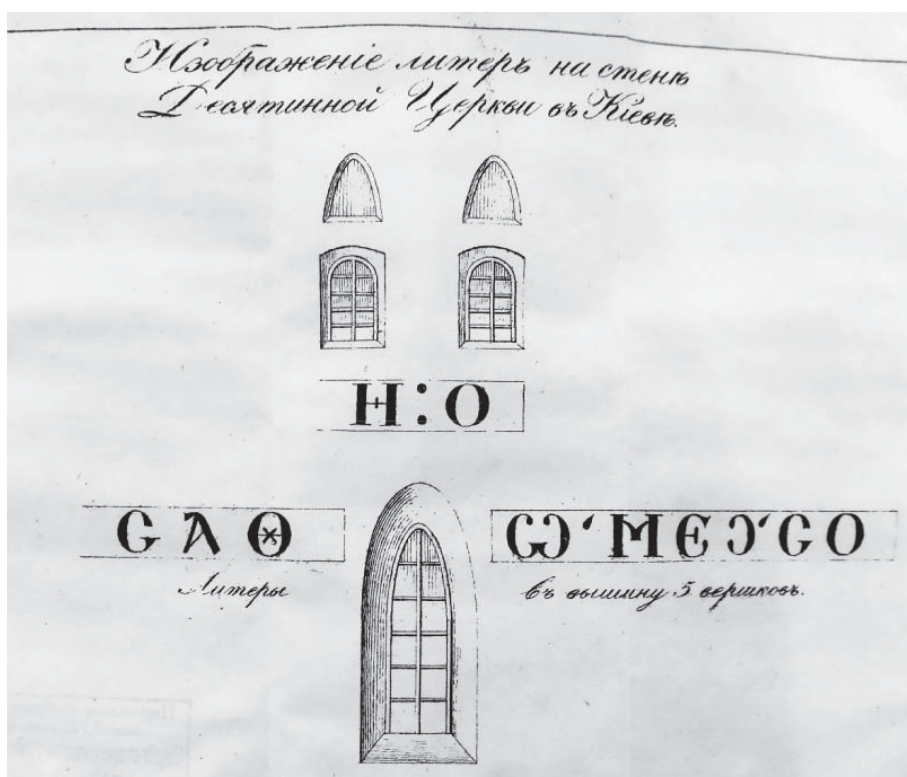 Изображеніе литеръ на стенѣ
Десятинной Церкви въ Кіевѣ.
Н : О
Ѡ҅ МЄ Ɔ҅ С О
Литеры
въ вышину 5 вершковъ.